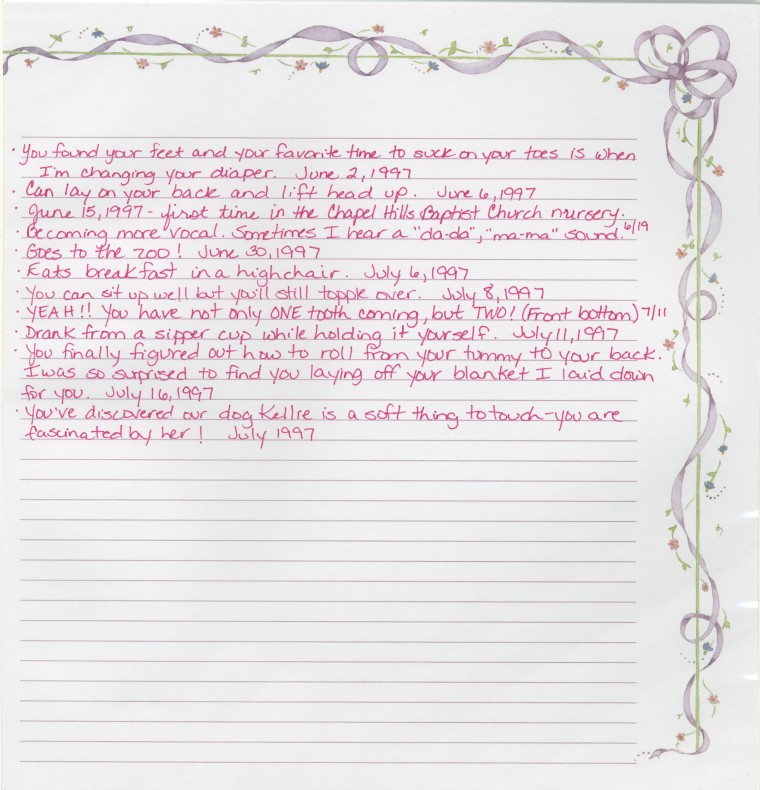 · You found your feet and your favorite time to suck on your toes is when
I'm changing your diaper. June 2, 1997
· Can lay on your back and lift head up. June 6, 1997
· June 15, 1997 - first time in the Chapel Hills Baptist Church nursery.
· Becoming more vocal. Sometimes I hear a "da-da", "ma-ma" sound. 6/19
· Goes to the zoo! June 30, 1997
· Eats breakfast in a highchair. July 6, 1997
· You can sit up well but you'll still topple over. July 8, 1997
· YEAH!! You have not only ONE tooth coming, but TWO! (Front bottom) 7/11
· Drank from a sipper cup while holding it yourself. July 11, 1997
· You finally figured out how to roll from your tummy to your back.
I was so surprised to find you laying off your blanket I laid down
for you. July 16, 1997
· You've discovered our dog Kellie is a soft thing to touch - you are
fascinated by her! July 1997